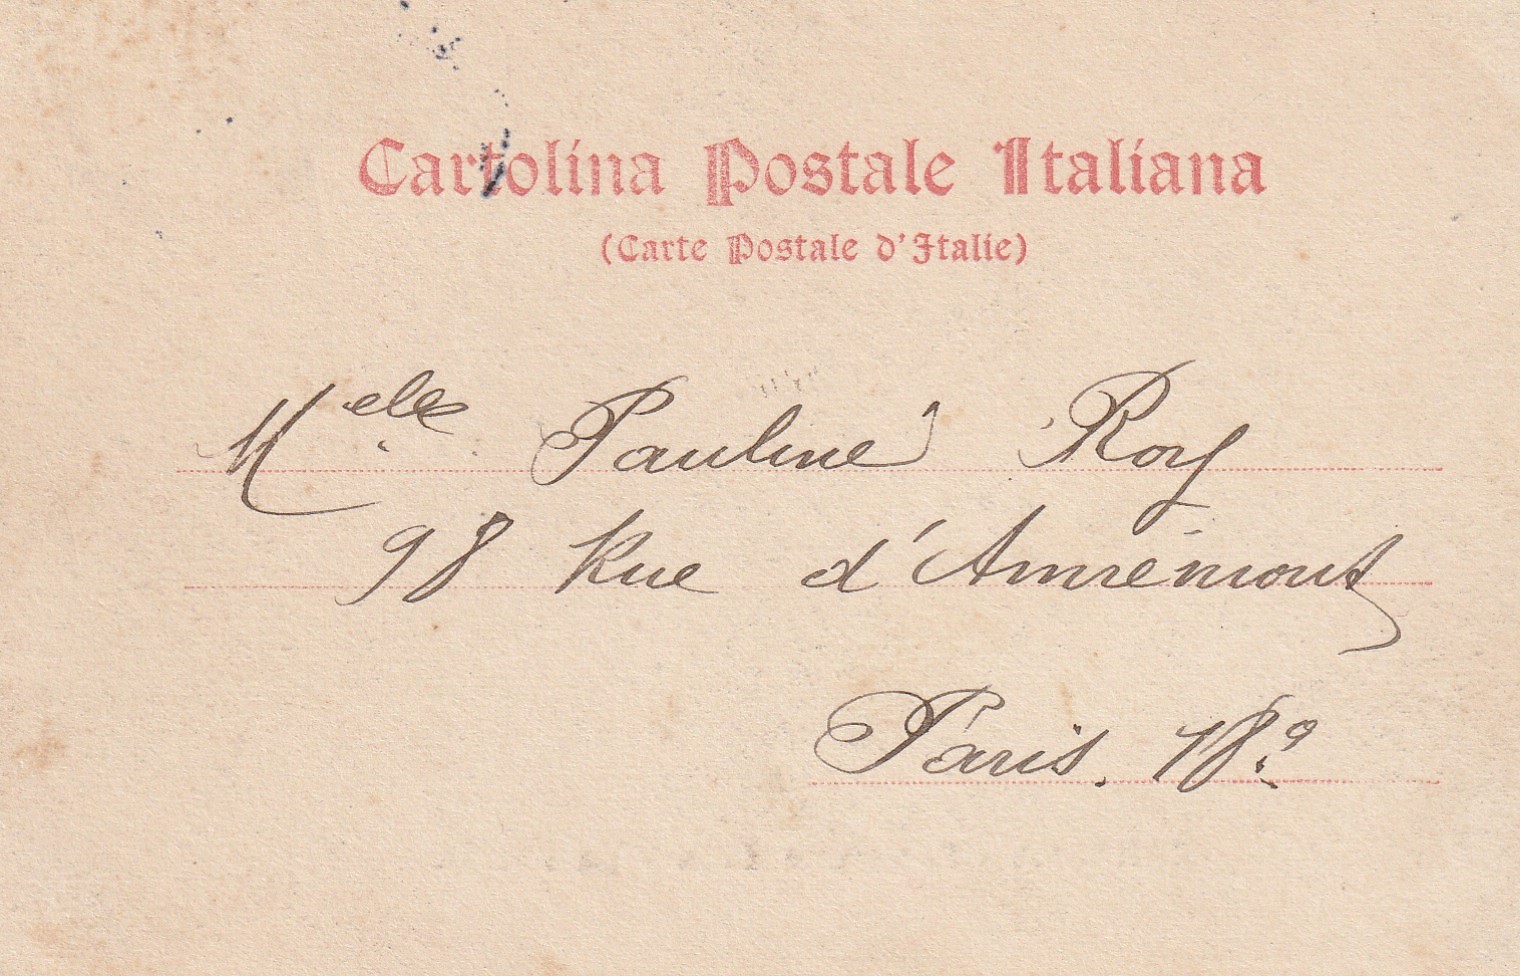 Cartolina Postale Italiana
(Carte Postale d'Italie)
Melle Pauline Roy
98 Rue d'Amrémont
Paris. 18e